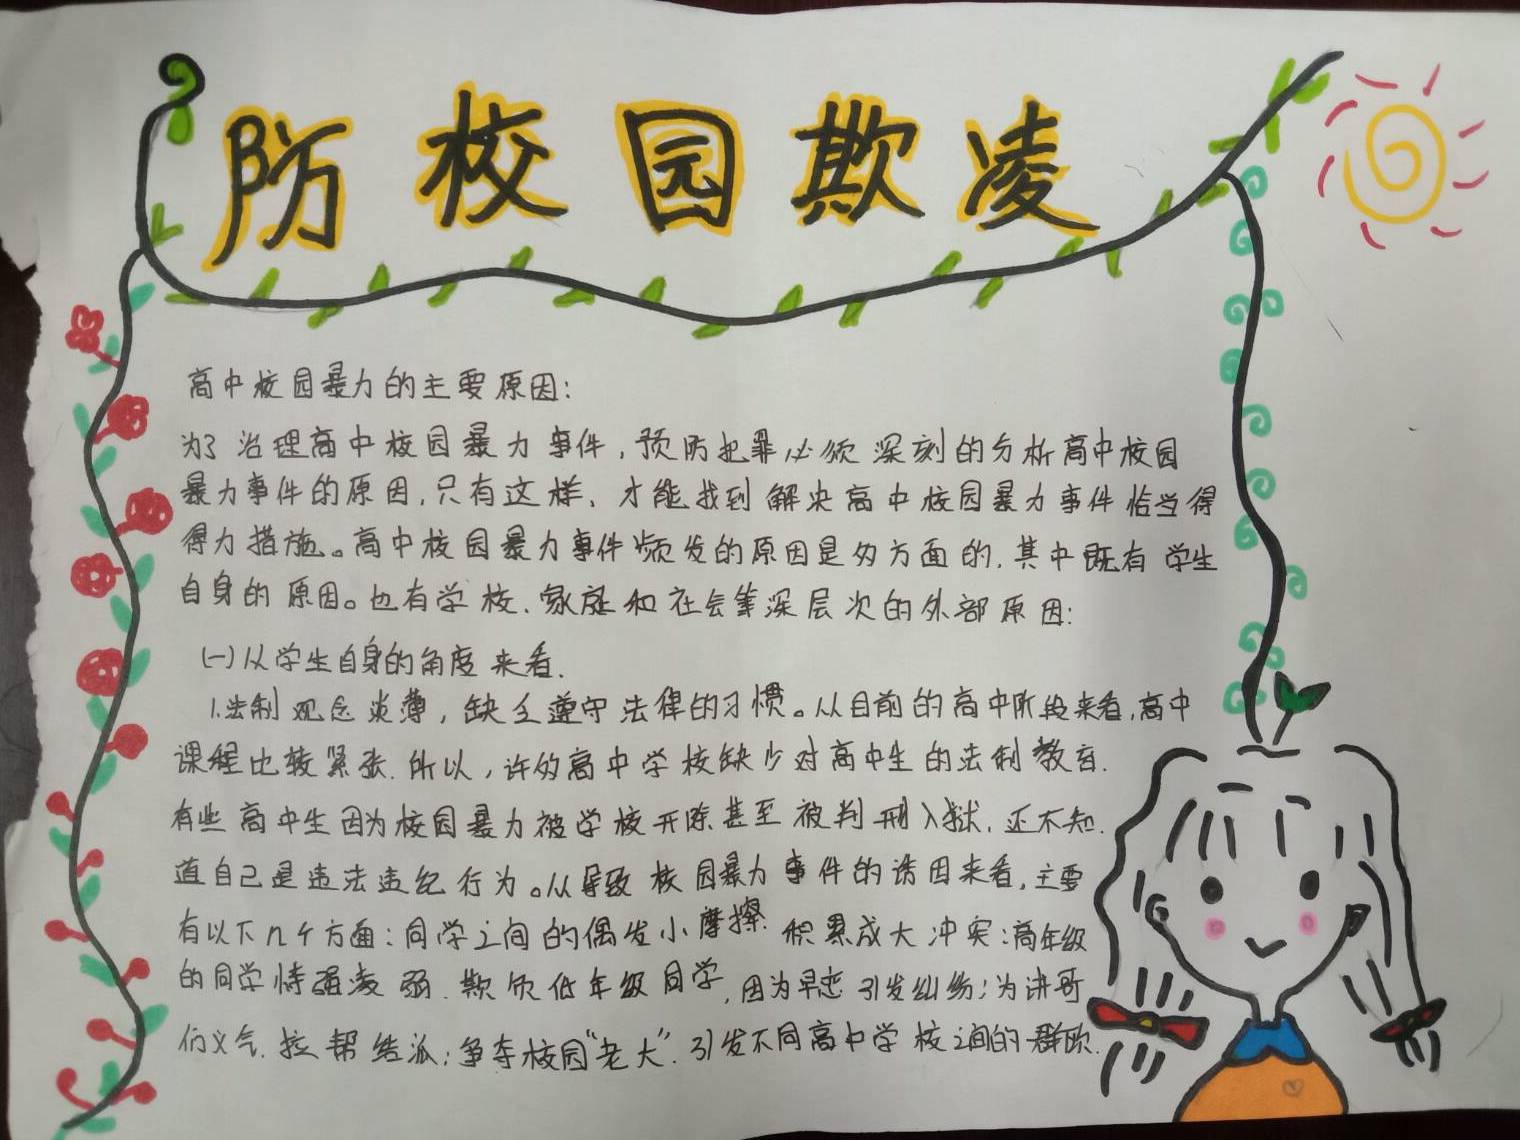 防校园欺凌
高中校园暴力的主要原因：
为了治理高中校园暴力事件，预防犯罪必须深刻的分析高中校园
暴力事件的原因，只有这样，才能找到解决高中校园暴力事件恰当得
得力措施。高中校园暴力事件频发的原因是多方面的，其中既有学生
自身的原因。也有学校、家庭和社会等深层次的外部原因：
(一)从学生自身的角度来看．
1.法制观念淡薄，缺乏遵守法律的习惯。从目前的高中阶段来看，高中
课程比较紧张．所以，许多高中学校缺少对高中生的法制教育．
有些高中生因为校园暴力被学校开除甚至被判刑入狱，还不知
道自己是违法违纪行为。从导致校园暴力事件的诱因来看，主要
有以下几个方面：同学之间的偶发小摩擦积累成大冲突：高年级
的同学恃强凌弱．欺负低年级同学，因为早恋引发纠纷；为讲哥
们义气．拉帮结派；争夺校园“老大”．引发不同高中学校之间的群殴．